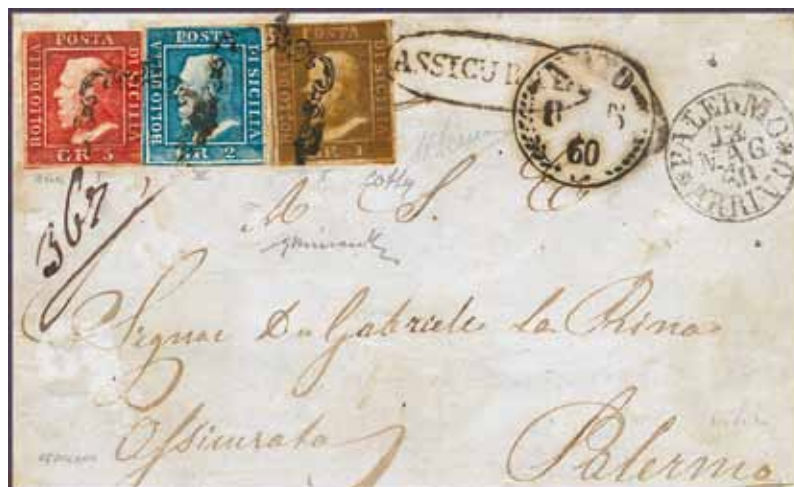 BOLLO DELLA POSTA DI SICILIA GR 5
BOLLO DELLA POSTA DI SICILIA GR 2
BOLLO DELLA POSTA DI SICILIA GR 1
ASSICUR
8 5
60
PALERMO
12
MAG
ARRIVO
367
A S. E.
Signor Dn Gabriele La Rina
Assicurata
Palermo